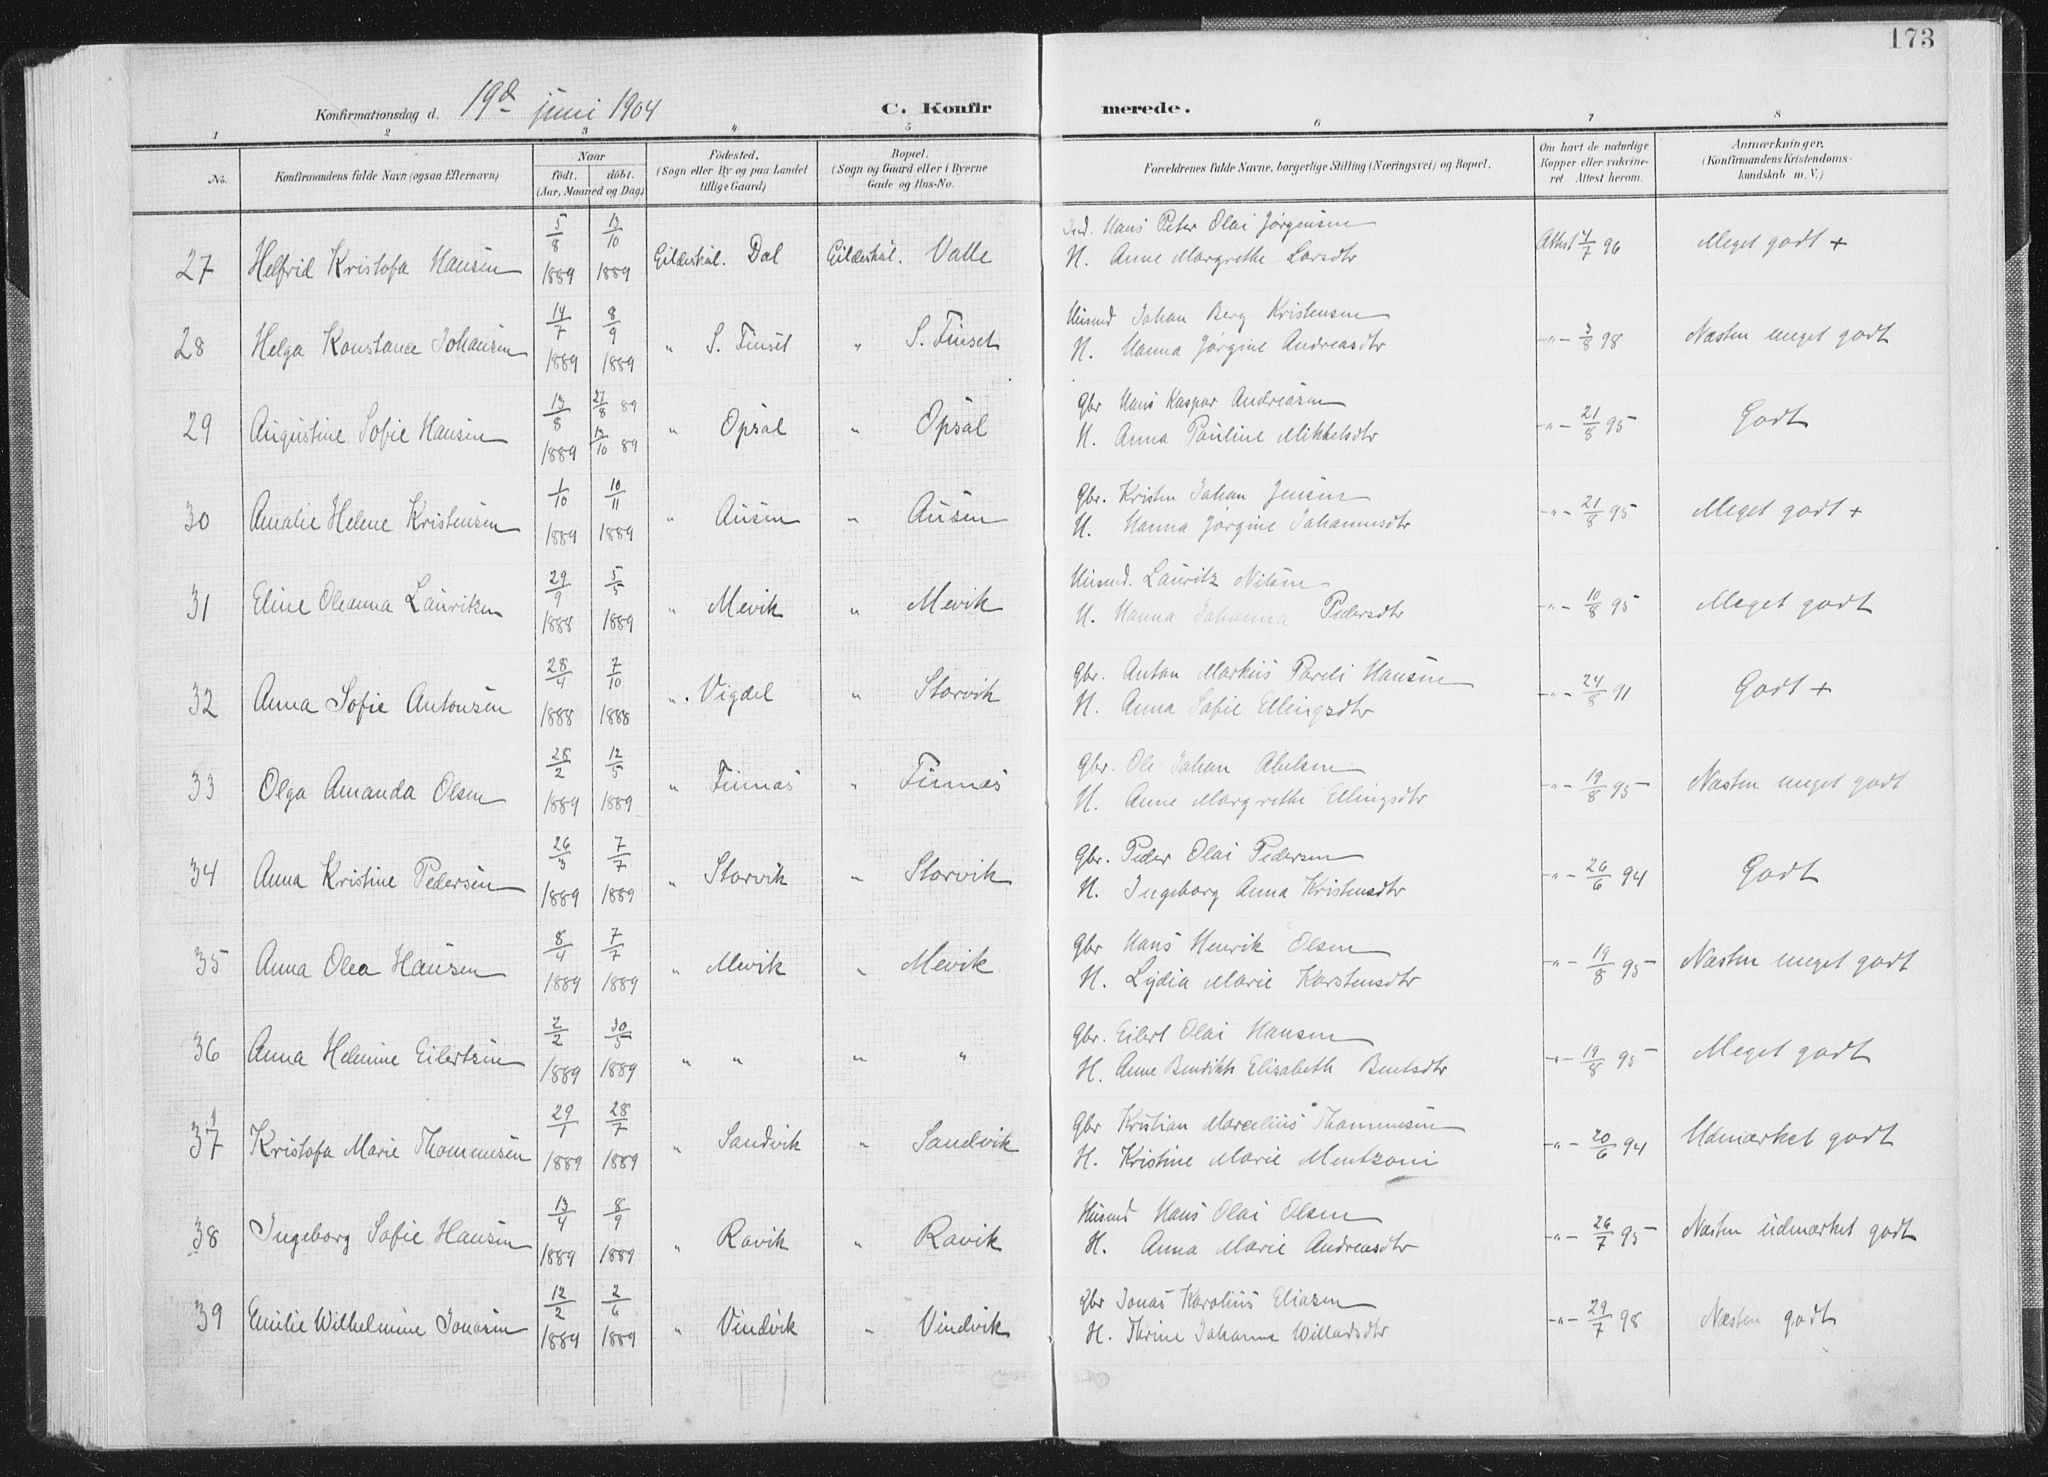 173
Konfirmationsdag d. 19de juni 1904
C. Konfirmerede.
1 2 3 4 5 6 7 8
No. Konfirmandens fulde Navn (ogsaa Efternavn) Naar født. døbt. (Aar, Maaned og Dag) Fødested. (Sogn eller By og paa Landet tillige Gaard) Bopæl. (Sogn og Gaard eller i Byerne Gade og Hus-No. Forældrenes fulde Navne, borgerlige Stilling (Næringsvei) og Bopæl. Om havt de naturlige Kopper eller vakcineret. Attest herom. Anmærkninger. (Konfirmandens Kristendomskundskab m. V.)
27 Helfrid Kristofa Hansen 5/8 1889 13/10 1889 Gildeskål. Dal Gildeskål. Valle Ind. Hans Peter Olai Jørgensen Attest 4/7 96 Meget godt +
H. Anne Margrethe Larsdtr
28 Helga Konstance Johansen 14/7 1889 8/9 1889 " S. Finset " S. Finset Husmd Johan Berg Kristensen -"- 3/8 98 Næsten meget godt
H. Hanna Jørgine Andreasdtr
29 Augustine Sofie Hansen 13/8 1889 27/8 89 13/10 89 " Opsal " Opsal Gbr Hans Kaspar Andreasen -"- 21/8 95 Godt
H. Anna Pauline Mikkelsdtr
30 Amalie Helene Kristensen 1/10 1889 10/11 1889 " Ausen " Ausen Gbr. Kristen Johan Jensen -"- 21/8 95 Meget godt +
H. Hanna Jørgine Johannesdtr
31 Eline Oleanna Lauritzen 29/9 1888 5/5 1889 " Mevik " Mevik Husmd. Lauritz Nilsen -"- 10/8 95 Meget godt
H. Hanna Johanna Pedersdtr
32 Anna Sofie Antonsen 28/4 1888 7/10 1888 " Vigdel " Storvik Gbr. Anton Markus Pareli Hansen -"- 24/8 91 Godt +
H. Anna Sofie Ellingsdtr
33 Olga Amanda Olsen 28/2 1889 12/5 1889 " Finnæs " Finnæs Gbr. Ole Johan Abelsen -"- 19/8 95 Næsten meget godt
H. Anne Margrethe Ellingsdtr
34 Anna Kristine Pedersen 26/3 1889 7/7 1889 " Storvik " Storvik Gbr. Peder Olai Pedersen -"- 26/6 94 Godt
H. Ingeborg Anna Kristensdtr
35 Anna Olea Hansen 8/4 1889 7/7 1889 " Mevik " Mevik Gbr Hans Henrik Olsen -"- 19/8 95 Næsten meget godt
H. Lydia Marie Karstensdtr
36 Anna Helmine Eilertsen 2/2 1889 30/5 1889 " " " " Gbr. Eilert Olai Hansen -"- 19/8 95 Meget godt
H. Anne Bendikte Elisabeth Bentsdtr
37 Kristofa Marie Thommesen 29/1 1889 28/7 1889 " Sandvik " Sandvik Gbr Kristian Marcelius Thommesen -"- 20/6 94 Udmærket godt
H. Kristine Marie Mentzoni
38 Ingeborg Sofie Hansen 13/4 1889 8/9 1889 " Ravik " Ravik Husmd Hans Olai Olsen -"- 26/7 95 Næsten udmærket godt
H. Anna Marie Andreasdtr
39 Emilie Wilhelmine Jonasen 12/2 1889 2/6 1889 " Vindvik " Vindvik Gbr Jonas Karolius Eliasen -"- 29/7 98 Næsten godt
H. Thrine Johanne Willadsdtr